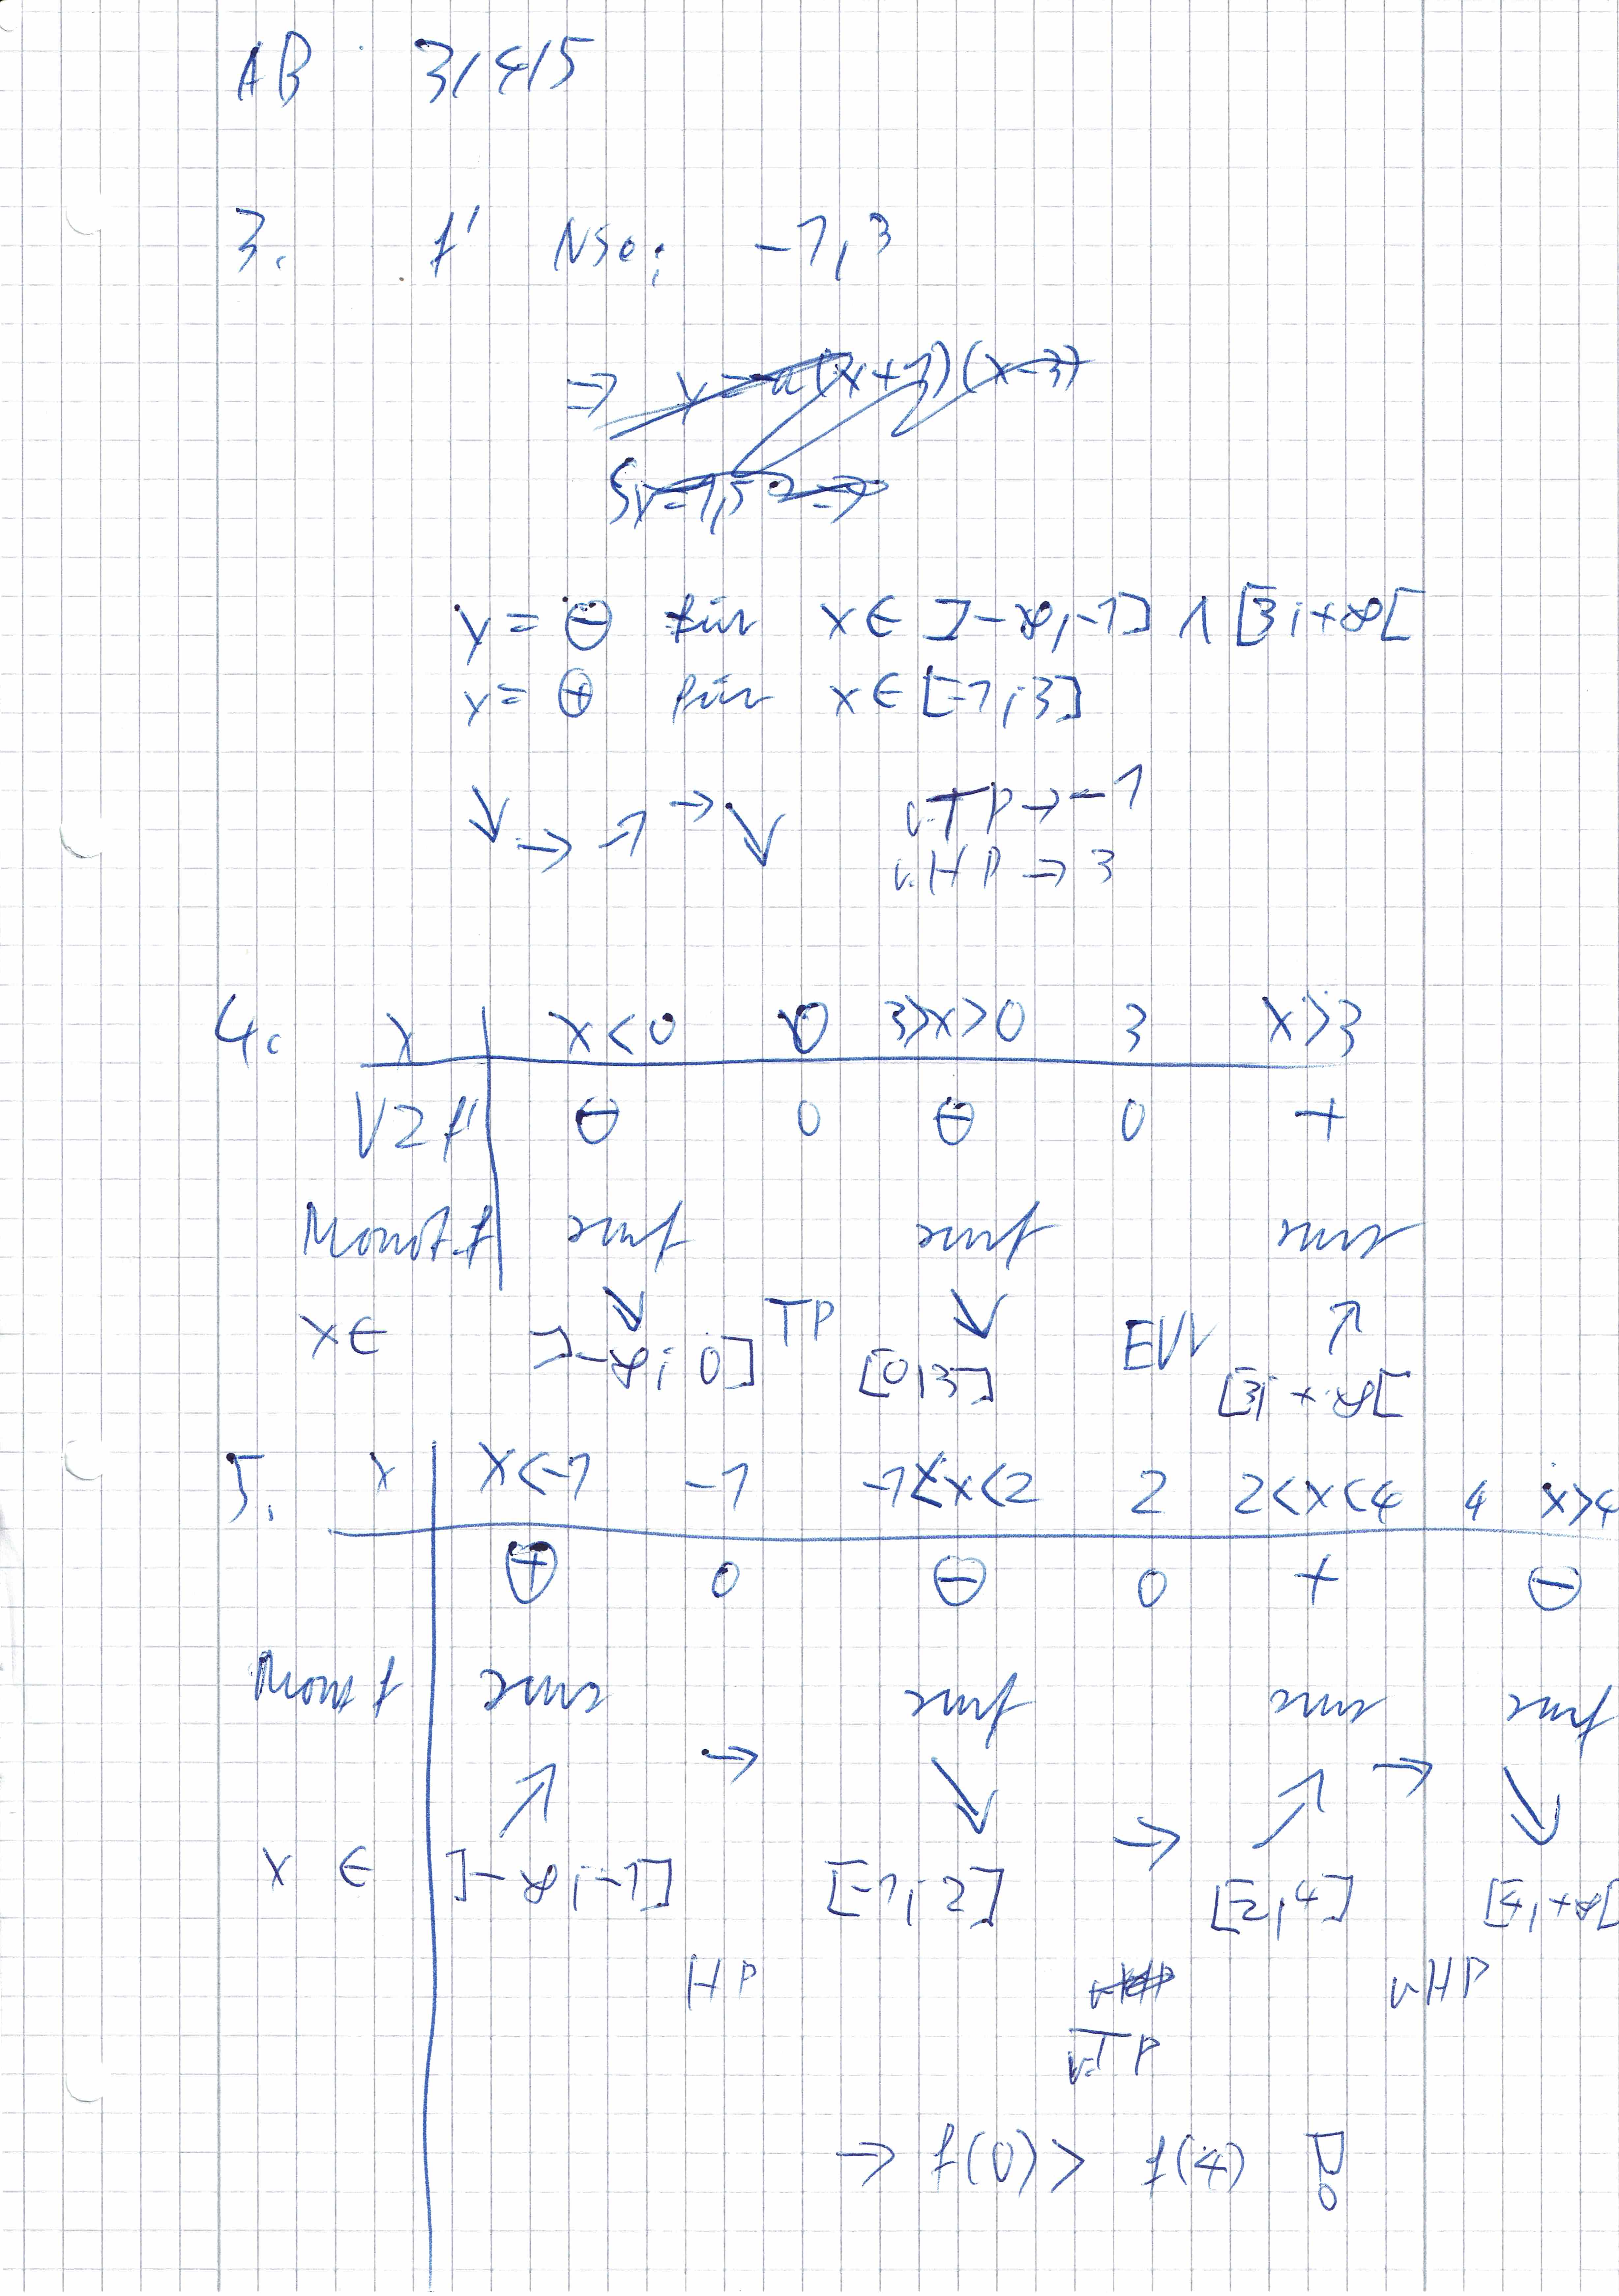 AB 3/4/5
3. f' NSt: -1, 3
⇒ y = a(x+1)(x-3)
Sy = 1,5
y = ⊖ für x ∈ ]-∞; -1] ∧ [3; +∞[
y = ⊕ für x ∈ [-1; 3]
↘ → ↗ → ↘ v.TP → -1
v.HP → 3
4. x x<0 0 3>x>0 3 x>3
VZ f' ⊖ 0 ⊖ 0 +
Monot. f smf smf sms
↘ TP ↘ ↗
x ∈ ]-∞; 0] [0; 3] [3; +∞[
5. x x<-1 -1 -1<x<2 2 2<x<4 4 x>4
⊕ 0 ⊖ 0 + ⊖
Mon f sms smf sms smf
↗ → ↘ → ↗ → ↘
x ∈ ]-∞; -1] [-1; 2] [2; 4] [4; +∞[
HP vHP vHP
v.TP
→ f(0) > f(4) !